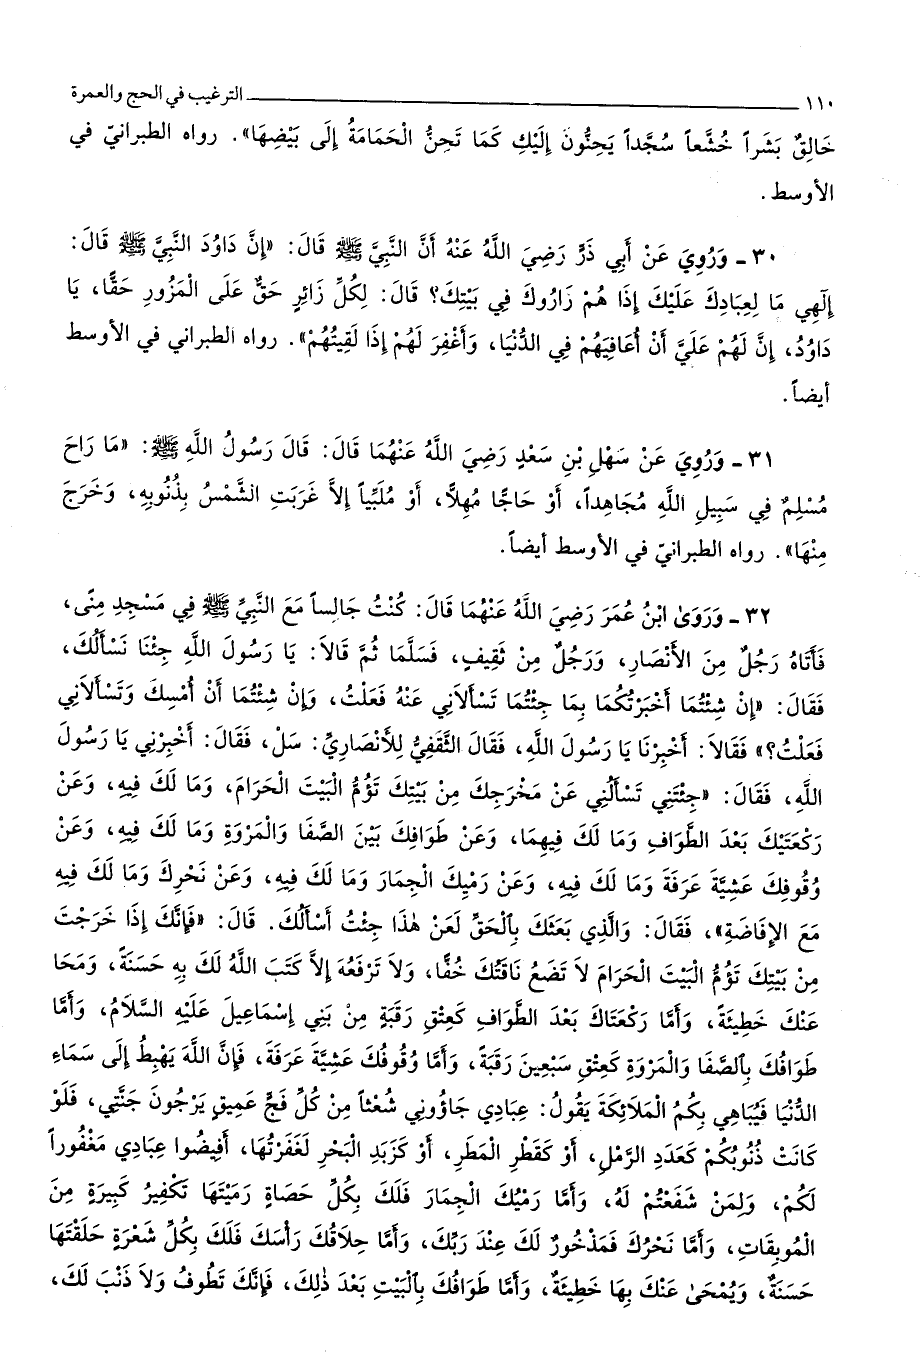 ١١٠ ــــــــــ الترغيب في الحج والعمرة
خَالِقٌ بَشَراً خُشَّعاً سُجَّداً يَحِنُّونَ إِلَيْكِ كَمَا تَحِنُّ الْحَمَامَةُ إِلَى بَيْضِهَا». رواه الطبرانيّ في
الأوسط.
٣٠ ـ وَرُوِيَ عَنْ أَبِي ذَرٍّ رَضِيَ اللَّهُ عَنْهُ أَنَّ النَّبِيَّ ﷺ قَالَ: «إِنَّ دَاوُدَ النَّبِيَّ ﷺ قَالَ:
إِلٰهِي مَا لِعِبَادِكَ عَلَيْكَ إِذَا هُمْ زَارُوكَ فِي بَيْتِكَ؟ قَالَ: لِكُلِّ زَائِرٍ حَقٌّ عَلَى الْمَزُورِ حَقًّا، يَا
دَاوُدُ، إِنَّ لَهُمْ عَلَيَّ أَنْ أُعَافِيَهُمْ فِي الدُّنْيَا، وَأَغْفِرَ لَهُمْ إِذَا لَقِيتُهُمْ». رواه الطبراني في الأوسط
أيضاً.
٣١ ـ وَرُوِيَ عَنْ سَهْلِ بْنِ سَعْدٍ رَضِيَ اللَّهُ عَنْهُمَا قَالَ: قَالَ رَسُولُ اللَّهِ ﷺ: «مَا رَاحَ
مُسْلِمٌ فِي سَبِيلِ اللَّهِ مُجَاهِداً، أَوْ حَاجًّا مُهِلاًّ، أَوْ مُلَبِّياً إِلاَّ غَرَبَتِ الشَّمْسُ بِذُنُوبِهِ، وَخَرَجَ
مِنْهَا». رواه الطبرانيّ في الأوسط أيضاً.
٣٢ ـ وَرَوَىٰ ابْنُ عُمَرَ رَضِيَ اللَّهُ عَنْهُمَا قَالَ: كُنْتُ جَالِساً مَعَ النَّبِيِّ ﷺ فِي مَسْجِدِ مِنًى،
فَأَتَاهُ رَجُلٌ مِنَ الأَنْصَارِ، وَرَجُلٌ مِنْ ثَقِيفٍ، فَسَلَّمَا ثُمَّ قَالاَ: يَا رَسُولَ اللَّهِ جِئْنَا نَسْأَلُكَ،
فَقَالَ: «إِنْ شِئْتُمَا أَخْبَرْتُكُمَا بِمَا جِئْتُمَا تَسْأَلاَنِي عَنْهُ فَعَلْتُ، وَإِنْ شِئْتُمَا أَنْ أُمْسِكَ وَتَسْأَلاَنِي
فَعَلْتُ؟» فَقَالاَ: أَخْبِرْنَا يَا رَسُولَ اللَّهِ، فَقَالَ الثَّقَفِيُّ لِلأَنْصَارِيِّ: سَلْ، فَقَالَ: أَخْبِرْنِي يَا رَسُولَ
اللَّهِ، فَقَالَ: «جِئْتَنِي تَسْأَلُنِي عَنْ مَخْرَجِكَ مِنْ بَيْتِكَ تَؤُمُّ الْبَيْتَ الْحَرَامَ، وَمَا لَكَ فِيهِ، وَعَنْ
رَكْعَتَيْكَ بَعْدَ الطَّوَافِ وَمَا لَكَ فِيهِمَا، وَعَنْ طَوَافِكَ بَيْنَ الصَّفَا وَالْمَرْوَةِ وَمَا لَكَ فِيهِ، وَعَنْ
وُقُوفِكَ عَشِيَّةَ عَرَفَةَ وَمَا لَكَ فِيهِ، وَعَنْ رَمْيِكَ الْجِمَارَ وَمَا لَكَ فِيهِ، وَعَنْ نَحْرِكَ وَمَا لَكَ فِيهِ
مَعَ الإِفَاضَةِ»، فَقَالَ: وَالَّذِي بَعَثَكَ بِٱلْحَقِّ لَعَنْ هٰذَا جِئْتُ أَسْأَلُكَ. قَالَ: «فَإِنَّكَ إِذَا خَرَجْتَ
مِنْ بَيْتِكَ تَؤُمُّ الْبَيْتَ الْحَرَامَ لاَ تَضَعُ نَاقَتُكَ خُفًّا، وَلاَ تَرْفَعُهُ إِلاَّ كَتَبَ اللَّهُ لَكَ بِهِ حَسَنَةً، وَمَحَا
عَنْكَ خَطِيئَةً، وَأَمَّا رَكْعَتَاكَ بَعْدَ الطَّوَافِ كَعِتْقِ رَقَبَةٍ مِنْ بَنِي إِسْمَاعِيلَ عَلَيْهِ السَّلاَمُ، وَأَمَّا
طَوَافُكَ بِٱلصَّفَا وَالْمَرْوَةِ كَعِتْقِ سَبْعِينَ رَقَبَةً، وَأَمَّا وُقُوفُكَ عَشِيَّةَ عَرَفَةَ، فَإِنَّ اللَّهَ يَهْبِطُ إِلَى سَمَاءِ
الدُّنْيَا فَيُبَاهِي بِكُمُ الْمَلاَئِكَةَ يَقُولُ: عِبَادِي جَاؤُونِي شُعْثاً مِنْ كُلِّ فَجٍّ عَمِيقٍ يَرْجُونَ جَنَّتِي، فَلَوْ
كَانَتْ ذُنُوبُكُمْ كَعَدَدِ الرَّمْلِ، أَوْ كَقَطْرِ الْمَطَرِ، أَوْ كَزَبَدِ الْبَحْرِ لَغَفَرْتُهَا، أَفِيضُوا عِبَادِي مَغْفُوراً
لَكُمْ، وَلِمَنْ شَفَعْتُمْ لَهُ، وَأَمَّا رَمْيُكَ الْجِمَارَ فَلَكَ بِكُلِّ حَصَاةٍ رَمَيْتَهَا تَكْفِيرُ كَبِيرَةٍ مِنَ
الْمُوبِقَاتِ، وَأَمَّا نَحْرُكَ فَمَذْخُورٌ لَكَ عِنْدَ رَبِّكَ، وَأَمَّا حِلاَقُكَ رَأْسَكَ فَلَكَ بِكُلِّ شَعْرَةٍ حَلَقْتَهَا
حَسَنَةٌ، وَيُمْحَىٰ عَنْكَ بِهَا خَطِيئَةٌ، وَأَمَّا طَوَافُكَ بِٱلْبَيْتِ بَعْدَ ذٰلِكَ، فَإِنَّكَ تَطُوفُ وَلاَ ذَنْبَ لَكَ،